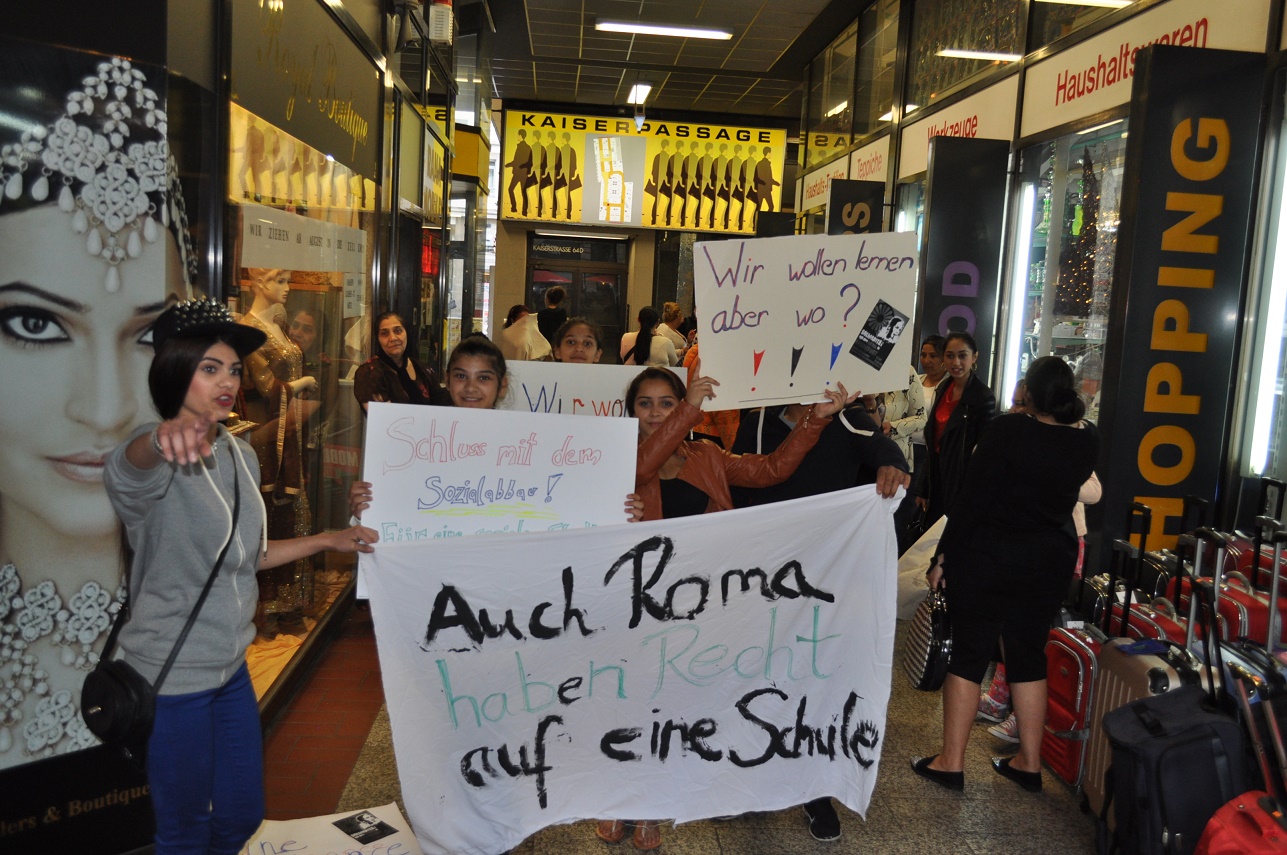 Royal Boutique
WIR ZIEHEN AB AUGUST IN DIE ZEIL
KAISERPASSAGE
KAISERSTRASSE 64D
Haushaltswaren
Werkzeuge
Teppiche
SHOPPING
OD
S
Wir wollen lernen
aber wo?
! ! !
Wir wo
Schluss mit dem
Sozialabbau!
Für eine
Auch Roma
haben Recht
auf eine Schule
& Boutique